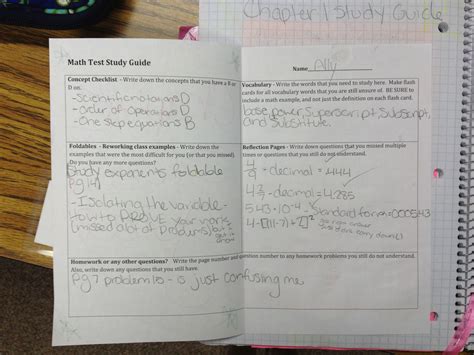 Chapter 1 Study Guide
Math Test Study Guide
Name Ally
Concept Checklist - Write down the concepts that you have a B or
D on.
- Scientific notations D
- Order of Operations D
- One step equations B
Vocabulary - Write the words that you need to study here. Make flash
cards for all vocabulary words that you are still unsure of. BE SURE to
include a math example, and not just the definition on each flash card.
base, power, Superscript, Subscript,
and Substitute.
Foldables - Reworking class examples - Write down the
examples that were the most difficult for you (or that you missed).
Do you have any more questions?
Study exponents foldable
pg 14
- Isolating the variable-
how to PROVE your work
(missed a lot of problems)
Reflection Pages - Write down questions that you missed multiple
times or questions that you still do not understand.
- decimal = .444
- decimal = 4.285
5.43 · 10⁻⁴ Standard form = .000543
Homework or any other questions? Write the page number and question number to any homework problems you still do not understand.
Also, write down any questions that you still have.
Pg 7 problem 18 - is just confusing me